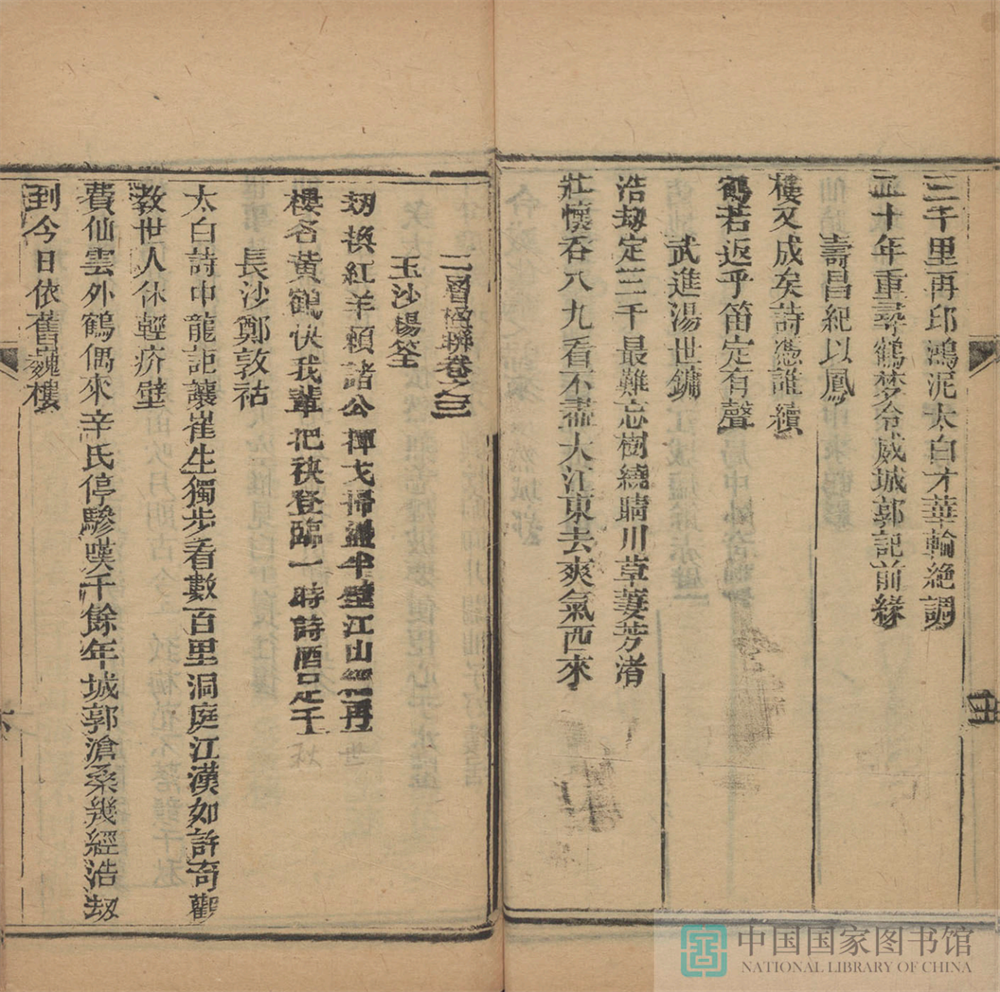 三千里再印鴻泥太白才華輸絶調
二十年重尋鶴夢令威城郭記前緣
壽昌紀以鳳
樓又成矣詩憑誰續
鶴若返乎笛定有聲
武進湯世鏞
浩刼定三千最難忘樹繞晴川草萋芳渚
壯懷吞八九看不盡大江東去爽氣西來
二層楹聯卷之三
玉沙楊筌
刼換紅羊賴諸公揮戈掃盪半壁江山經再世
樓名黃鶴快我輩把袂登臨一時詩酒足千秋
長沙鄭敦祜
太白詩中龍詎讓崔生獨步看數百里洞庭江漢如許奇觀
教世人休輕疥壁
費仙雲外鶴偶來辛氏停驂嘆千餘年城郭滄桑幾經浩刼
到今日依舊巍樓
中国国家图书馆
NATIONAL LIBRARY OF CHINA